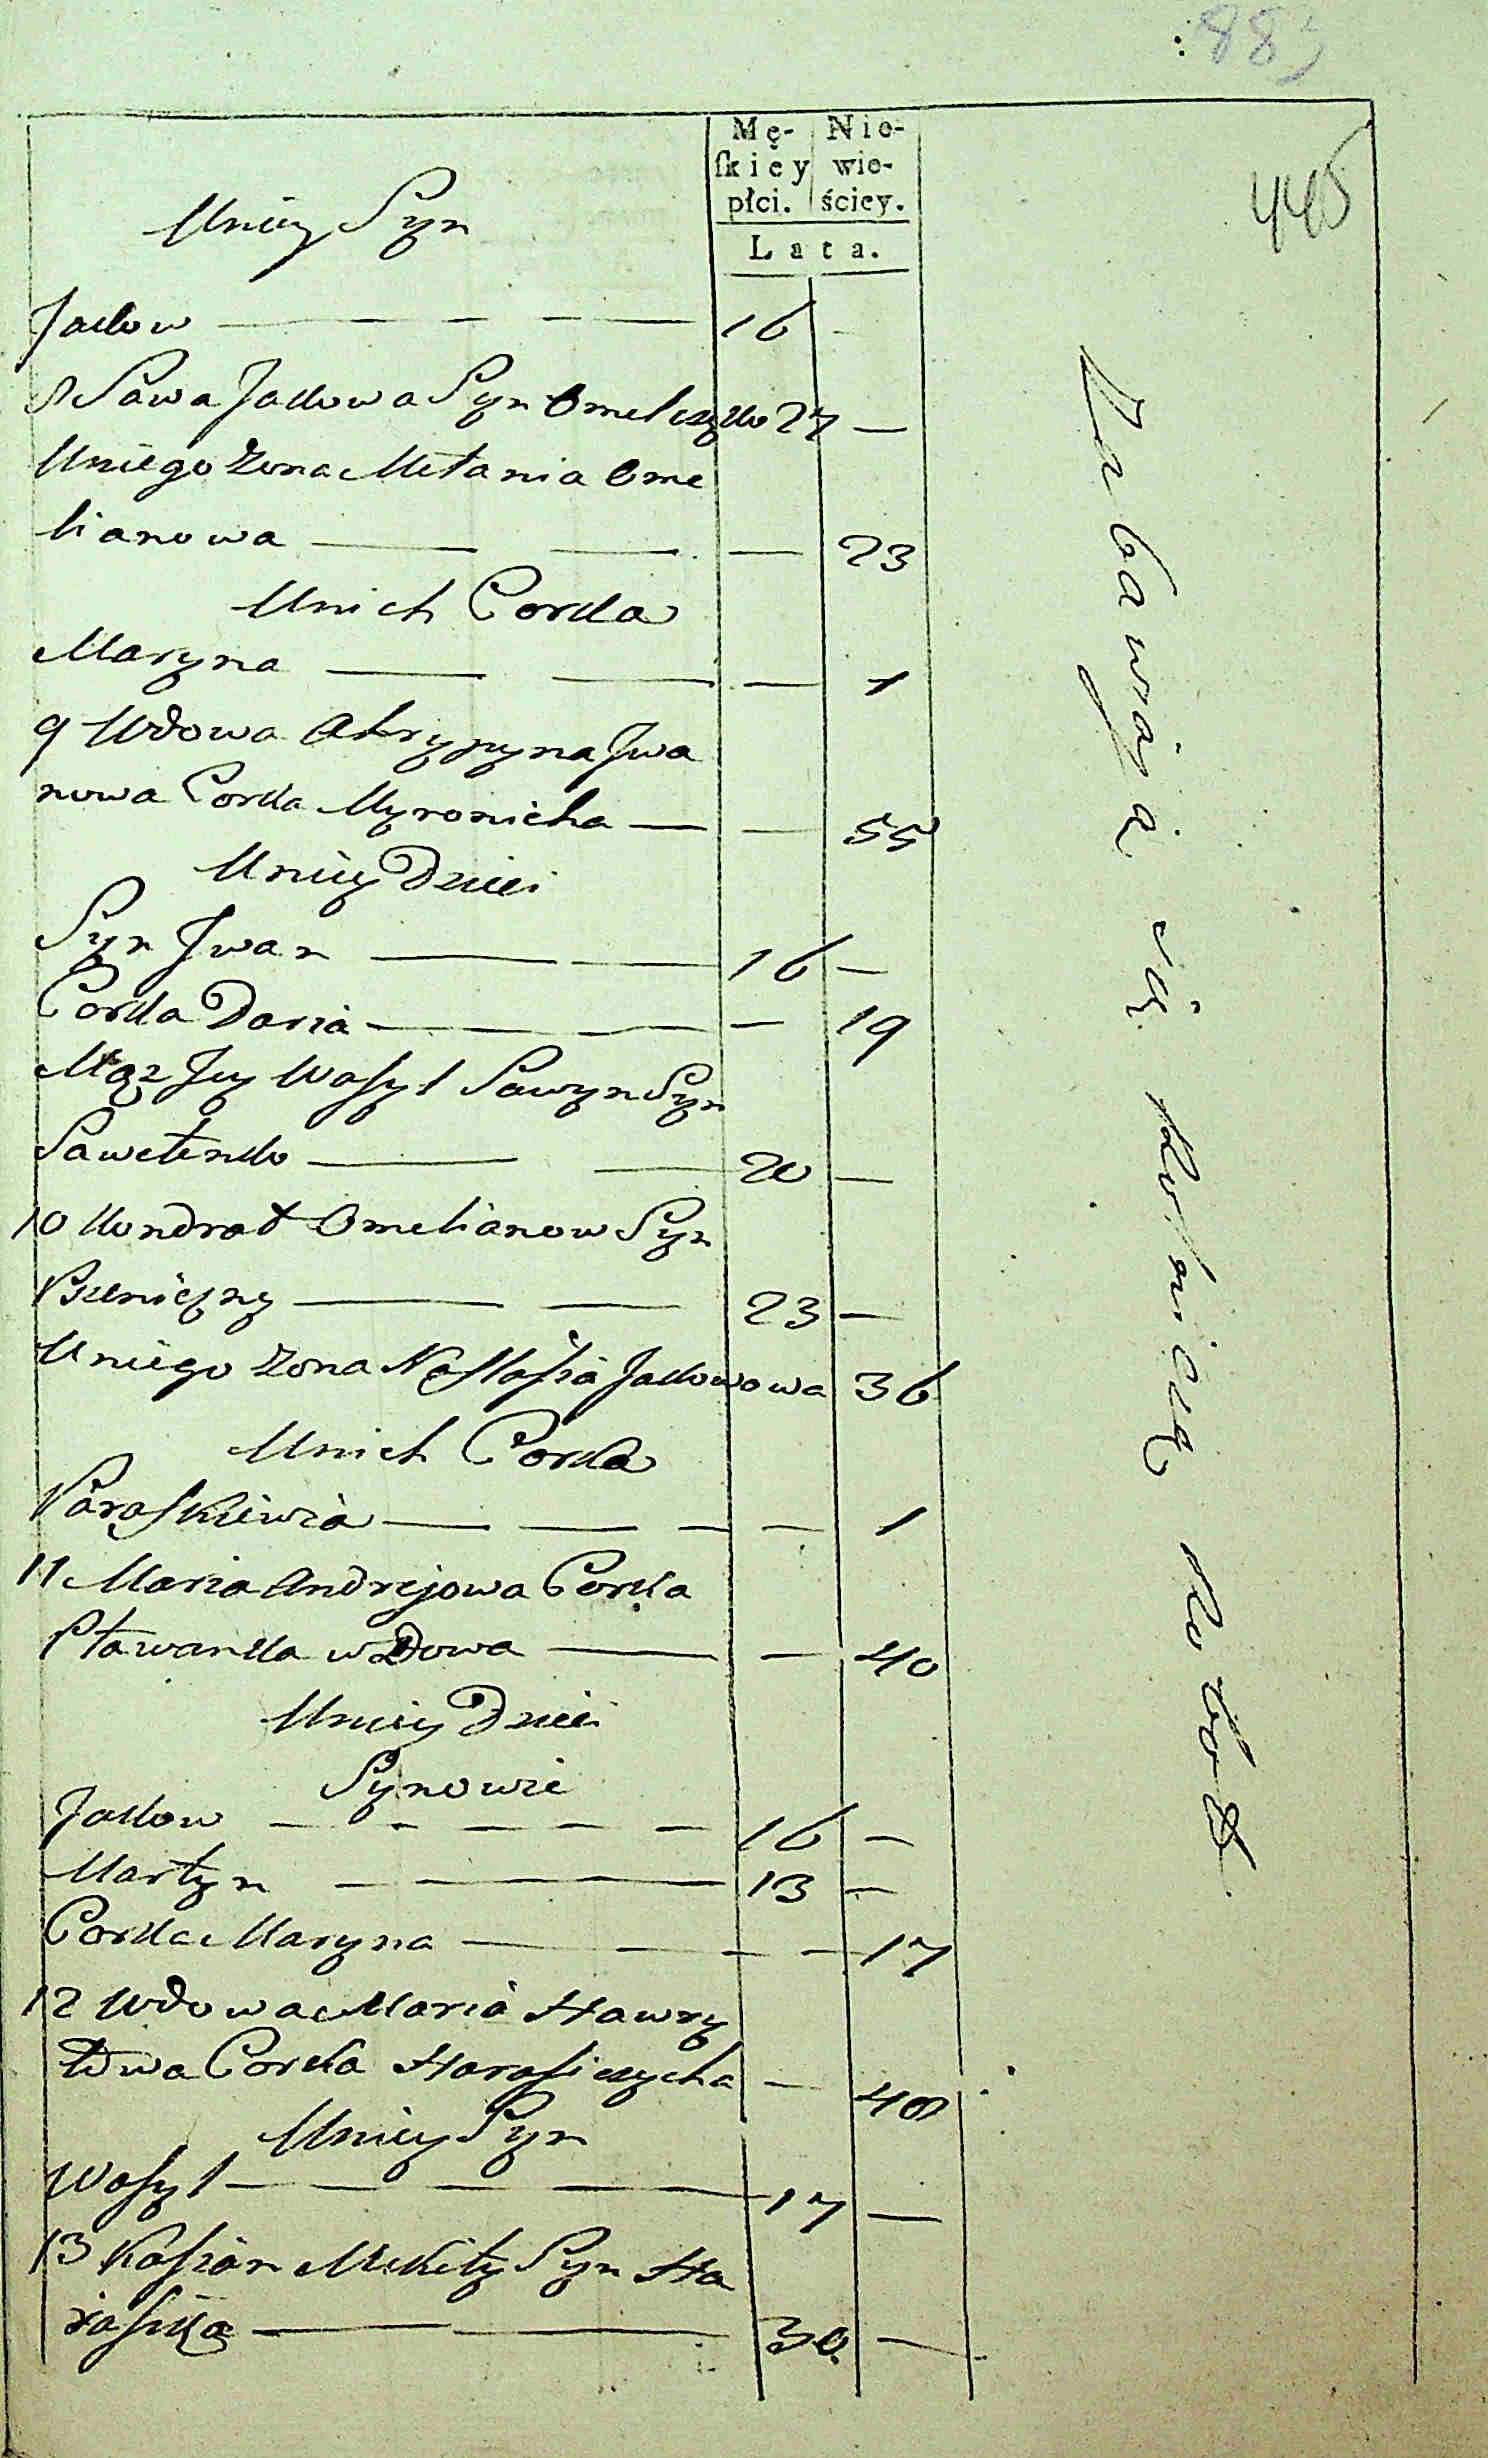 883
Mę- Nie-
ſkiey wie-
płci. ściey.
Lata.
445
Uniey Syn
Jakow — — — — 16 —
8 Sawa Jakowa Syn Omelczyko 27 —
Uniego Zona Metania Ome
lianowa — — — 23
Unich Corka
Maryna — — — 1
9 Wdowa Ahrypyna Jwa
nowa Corka Myronicha — — 55
Uniey Dzieci
Syn Jwan — — 16 —
Corka Daria — — — — 19
Mąz Jey Wasyl Sawyn Syn
Sawetenko — — 20 —
10 Kondrat Omelianow Syn
— — 23 —
Uniego Zona Nastasia Jakowowa 36
Unich Corka
Paraskiewia — — — — 1
11 Maria Andrejowa Corka
Stawanka wdowa — — 40
Uniey Dzieci
Synowie
Jakow — — — — — 16 —
Martyn — — — — 13 —
Corka Maryna — — — — 17
12 Wdowa Maria Hawry
łowa Corka Harasiczycha — 48
Uniey Syn
Wasyl — — — — — 17 —
13 Kasian Mikity Syn Ha
— — 30 —
Zabawiają się rolniczą robotą